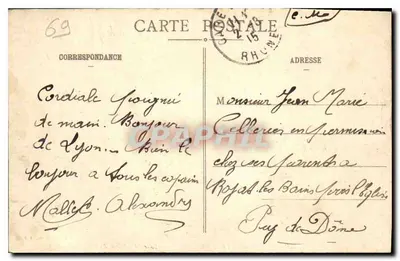 69
CARTE POSTALE
C.M.
RHONE
CORRESPONDANCE
ADRESSE
Cordiale poignée
de main. Bonjour
de Lyon.. Bien le
bonjour a tous les copains
Mallet Alexandre
Monsieur Jean Marie
en permission
chez ses parents a
Royat les Bains près l'Eglise
Puy de Dôme